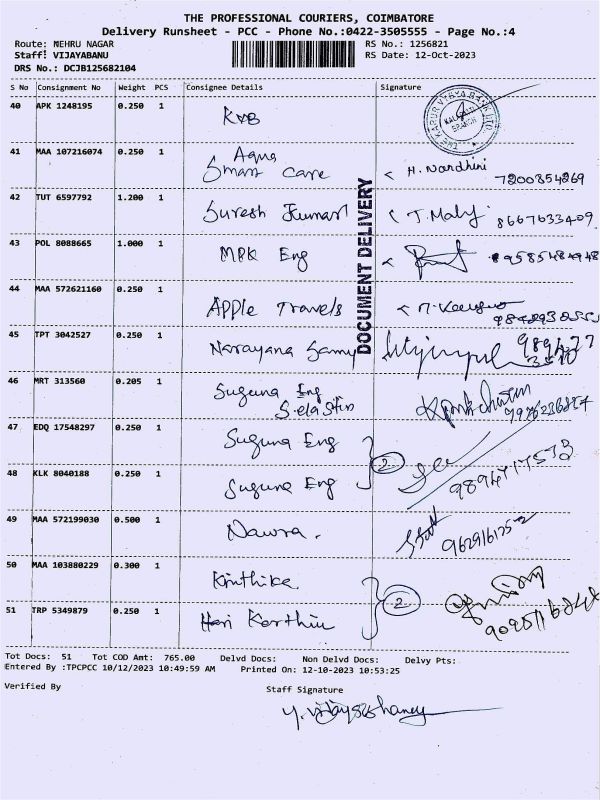 THE PROFESSIONAL COURIERS, COIMBATORE
Delivery Runsheet - PCC - Phone No.:0422-3505555 - Page No.:4
Route: MEHRU NAGAR
Staff: VIJAYABANU
DRS No.: DCJB125682104
RS No.: 1256821
RS Date: 12-Oct-2023
S No Consignment No Weight PCS Consignee Details Signature
40 APK 1248195 0.250 1 KVB
41 MAA 107216074 0.250 1 Aqua
Smart Care H. Nandhini
7200354269
42 TUT 6597792 1.200 1 Suresh Kumar T. Maly 8667633409
43 POL 8088665 1.000 1 MPK Eng 89585484948
44 MAA 572621160 0.250 1 APPle Travels
45 TPT 3042527 0.250 1 Narayana Samy
46 MRT 313560 0.205 1 Suguna Eng
47 EDQ 17548297 0.250 1 Suguna Eng
2
48 KLK 8040188 0.250 1 Suguna Eng
49 MAA 572199030 0.500 1 Nawra.
50 MAA 103880229 0.300 1 Krithika
2
51 TRP 5349879 0.250 1 Hari Karthi
DOCUMENT DELIVERY
THE KARUR VYSYA BANK LTD.
BRANCH
Tot Docs: 51 Tot COD Amt: 765.00 Delvd Docs: Non Delvd Docs: Delvy Pts:
Entered By :TPCPCC 10/12/2023 10:49:59 AM Printed On: 12-10-2023 10:53:25
Verified By Staff Signature